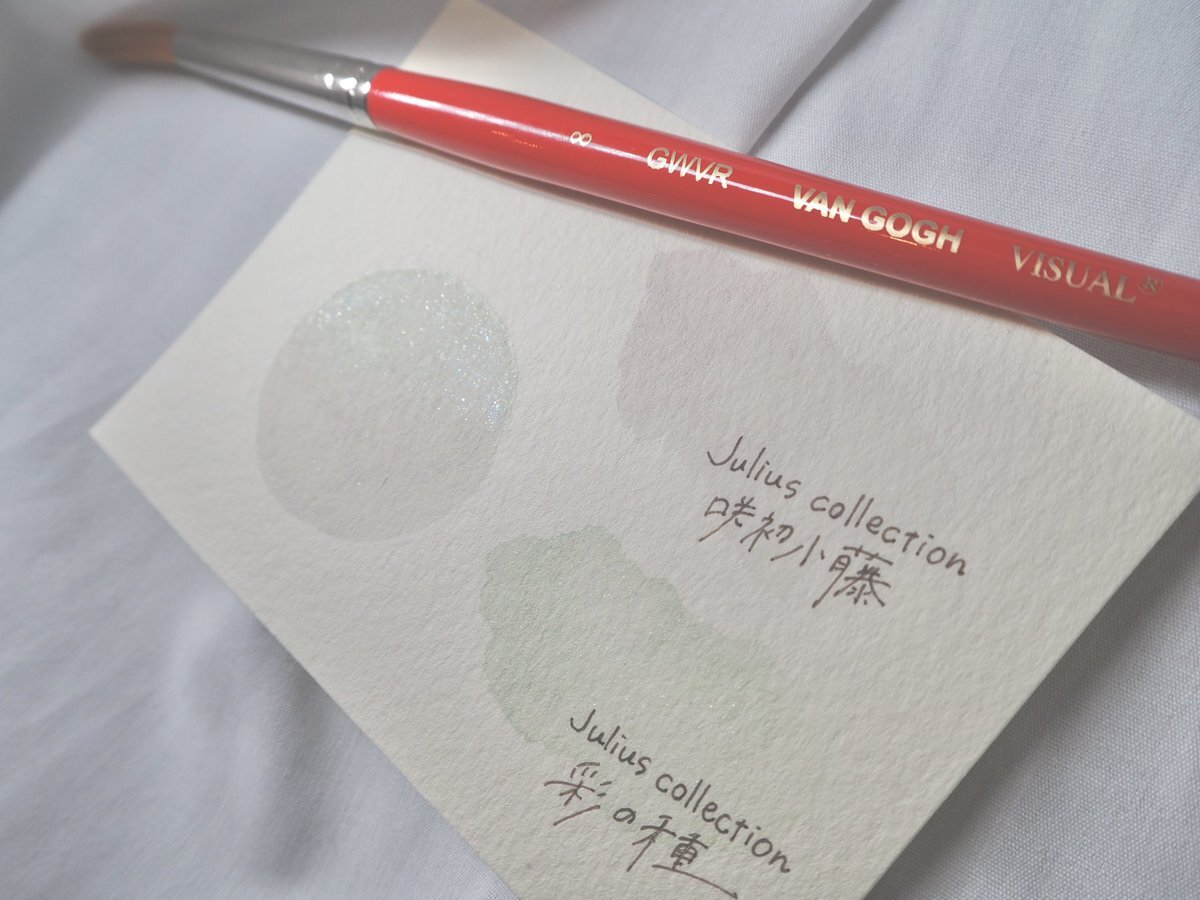 8 GWVR VAN GOGH VISUAL®
Julius collection
咲初小藤
Julius collection
彩の種